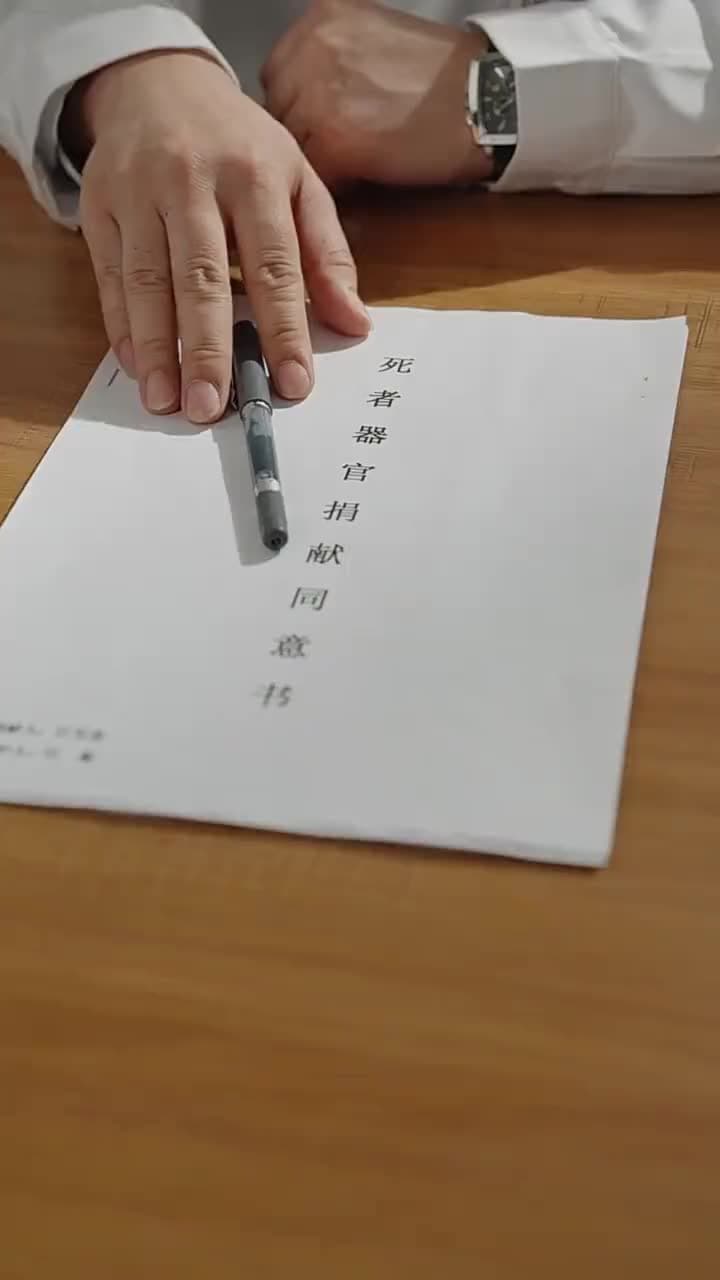 死者器官捐献同意书